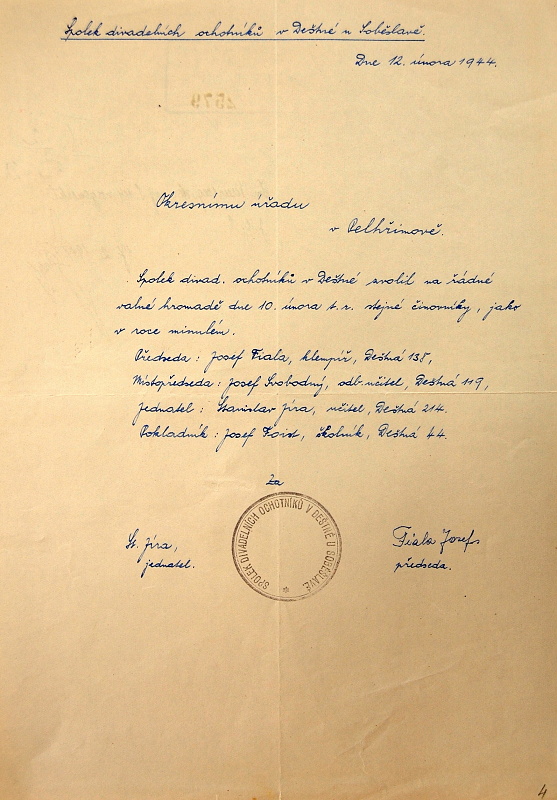 Spolek divadelních ochotníků v Deštné u Soběslavě.
Dne 12. února 1944.
2579
Okresnímu úřadu
v Pelhřimově.
Spolek divad. ochotníků v Deštné zvolil na řádné
valné hromadě dne 10. února t. r. stejné činovníky, jako
v roce minulém.
Předseda: Josef Fiala, klempíř, Deštná 138,
Místopředseda: Josef Svobodný, odb. učitel, Deštná 119,
Jednatel: Stanislav Jíra, učitel, Deštná 214.
Pokladník: Josef Foist, školník, Deštná 44.
Za
SPOLEK DIVADELNÍCH OCHOTNÍKŮ V DEŠTNÉ U SOBĚSLAVĚ
St. Jíra,
jednatel.
Fiala Josef
předseda.
4